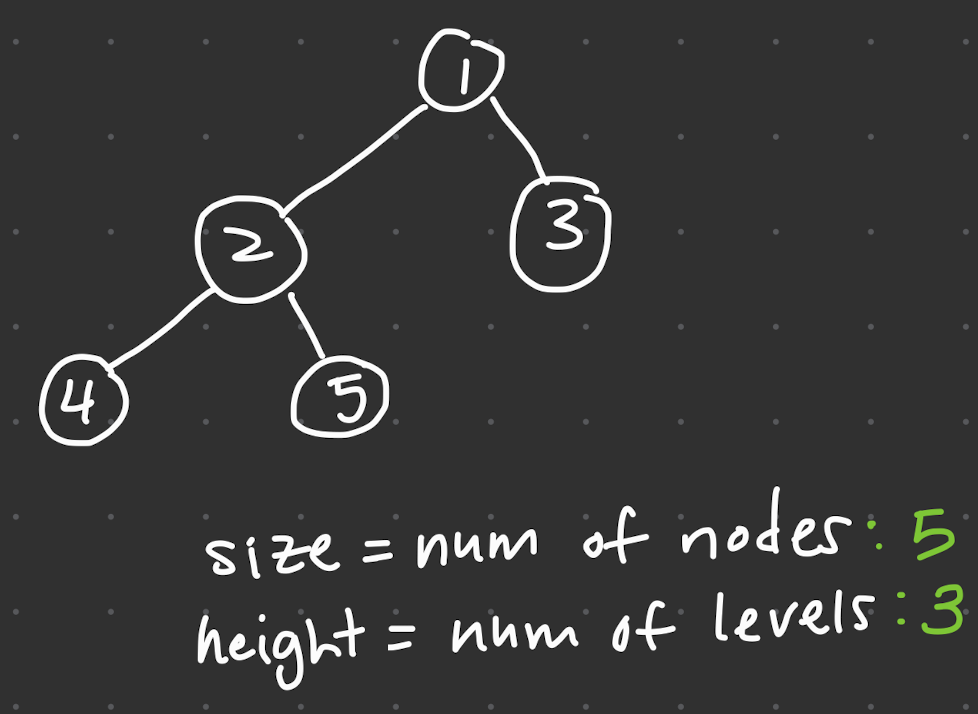 1
2 3
4 5
size = num of nodes: 5
height = num of levels: 3